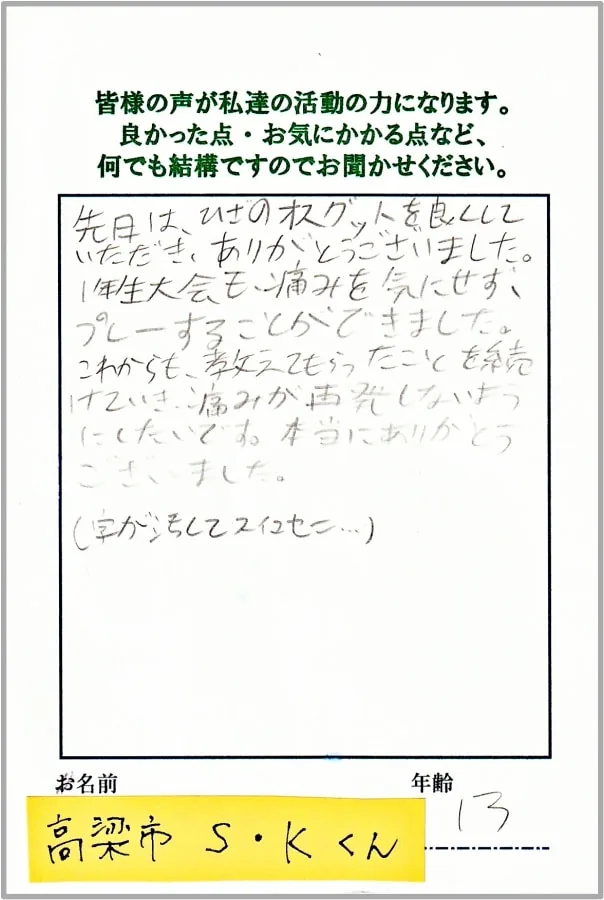 皆様の声が私達の活動の力になります。
良かった点・お気にかかる点など、
何でも結構ですのでお聞かせください。
先日は、ひざのオスグットを良くして
いただき、ありがとうございました。
1年生大会も、痛みを気にせず、
プレーすることができました。
これからも、教えてもらったことを続
けていき、痛みが再発しないよう
にしたいです。本当にありがとう
ございました。
(字が汚くてスイマセン…)
お名前
年齢
高梁市 S・Kくん
13